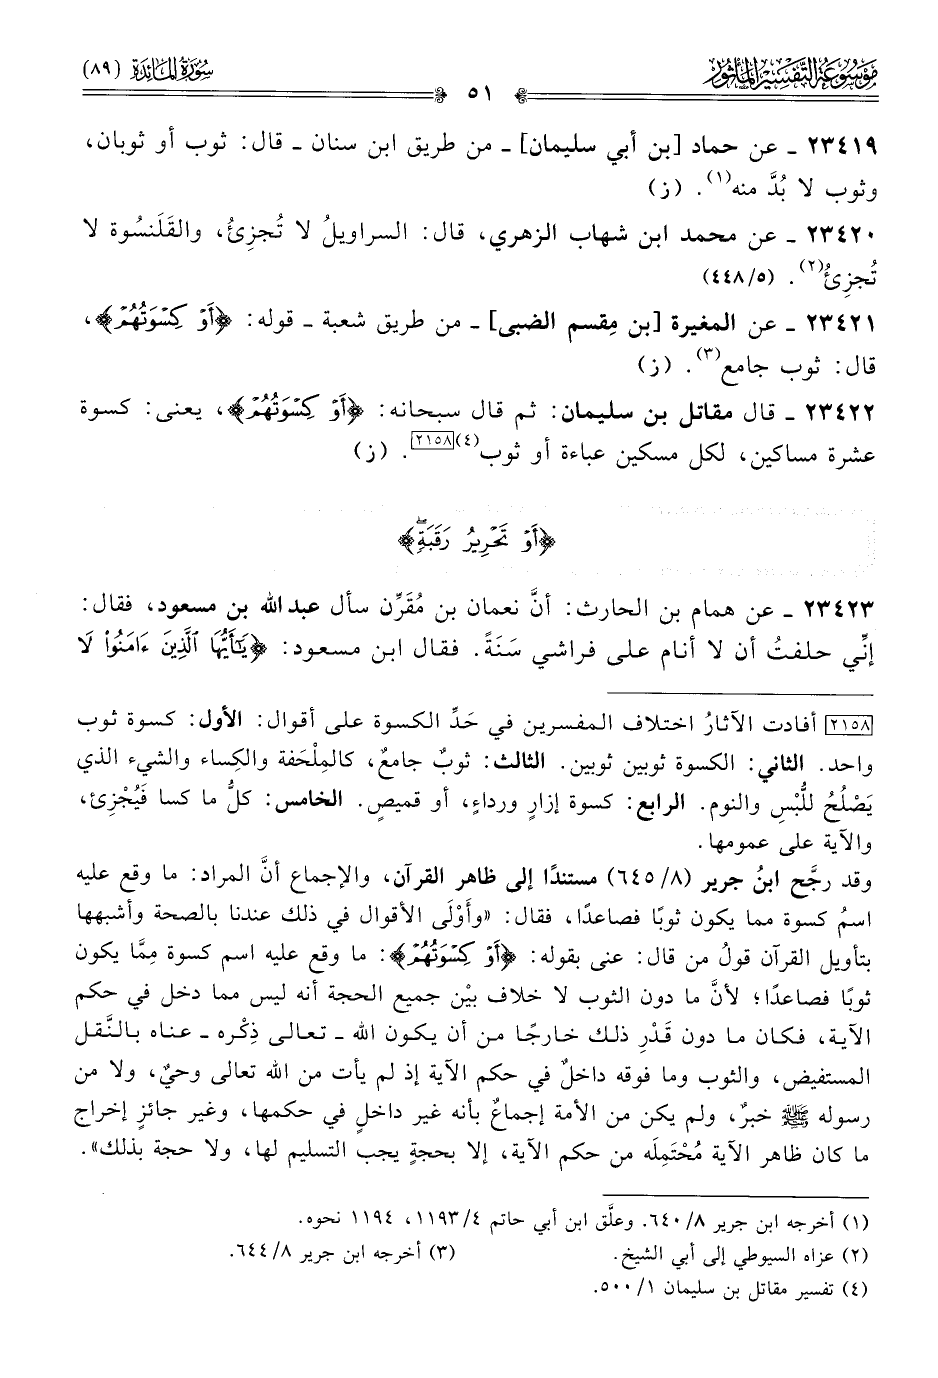 موسوعة التفسير المأثور
٥١
سورة المائدة (٨٩)
٢٣٤١٩ ـ عن حماد [بن أبي سليمان] ـ من طريق ابن سنان ـ قال: ثوب أو ثوبان،
وثوب لا بُدَّ منه(١). (ز)
٢٣٤٢٠ ـ عن محمد ابن شهاب الزهري، قال: السراويلُ لا تُجزِئُ، والقَلَنسُوة لا
تُجزِئُ(٢). (٤٤٨/٥)
٢٣٤٢١ ـ عن المغيرة [بن مِقسم الضبي] ـ من طريق شعبة ـ قوله: ﴿أَوْ كِسْوَتُهُمْ﴾،
قال: ثوب جامع(٣). (ز)
٢٣٤٢٢ ـ قال مقاتل بن سليمان: ثم قال سبحانه: ﴿أَوْ كِسْوَتُهُمْ﴾، يعني: كسوة
عشرة مساكين، لكل مسكين عباءة أو ثوب(٤)[٢١٥٨]. (ز)
﴿أَوْ تَحْرِيرُ رَقَبَةٍۖ﴾
٢٣٤٢٣ ـ عن همام بن الحارث: أنَّ نعمان بن مُقَرِّن سأل عبد الله بن مسعود، فقال:
إنِّي حلفتُ أن لا أنام على فراشي سَنَةً. فقال ابن مسعود: ﴿يَٰٓأَيُّهَا ٱلَّذِينَ ءَامَنُوا۟ لَا
[٢١٥٨] أفادت الآثارُ اختلاف المفسرين في حَدِّ الكسوة على أقوال: الأول: كسوة ثوب
واحد. الثاني: الكسوة ثوبين ثوبين. الثالث: ثوبٌ جامعٌ، كالمِلْحَفة والكِساء والشيء الذي
يَصْلُحُ للُّبْسِ والنوم. الرابع: كسوة إزارٍ ورداءٍ، أو قميصٍ. الخامس: كلُّ ما كسا فَيُجْزِئ،
والآية على عمومها.
وقد رجَّح ابنُ جرير (٦٤٥/٨) مستندًا إلى ظاهر القرآن، والإجماع أنَّ المراد: ما وقع عليه
اسمُ كسوة مما يكون ثوبًا فصاعدًا، فقال: «وأَوْلَى الأقوال في ذلك عندنا بالصحة وأشبهها
بتأويل القرآن قولُ من قال: عنى بقوله: ﴿أَوْ كِسْوَتُهُمْ﴾: ما وقع عليه اسم كسوة مِمَّا يكون
ثوبًا فصاعدًا؛ لأنَّ ما دون الثوب لا خلاف بيْن جميع الحجة أنه ليس مما دخل في حكم
الآية، فكان ما دون قَدْرِ ذلك خارجًا من أن يكون الله ـ تعالى ذِكْره ـ عناه بالنَّقل
المستفيض، والثوب وما فوقه داخلٌ في حكم الآية إذ لم يأت من الله تعالى وحيٌ، ولا من
رسوله ﷺ خبرٌ، ولم يكن من الأمة إجماعٌ بأنه غير داخلٍ في حكمها، وغير جائزٍ إخراج
ما كان ظاهر الآية مُحْتَمِلَه من حكم الآية، إلا بحجةٍ يجب التسليم لها، ولا حجة بذلك».
(١) أخرجه ابن جرير ٨/ ٦٤٠. وعلَّق ابن أبي حاتم ٤/ ١١٩٣، ١١٩٤ نحوه.
(٢) عزاه السيوطي إلى أبي الشيخ. (٣) أخرجه ابن جرير ٨/ ٦٤٤.
(٤) تفسير مقاتل بن سليمان ١/ ٥٠٠.